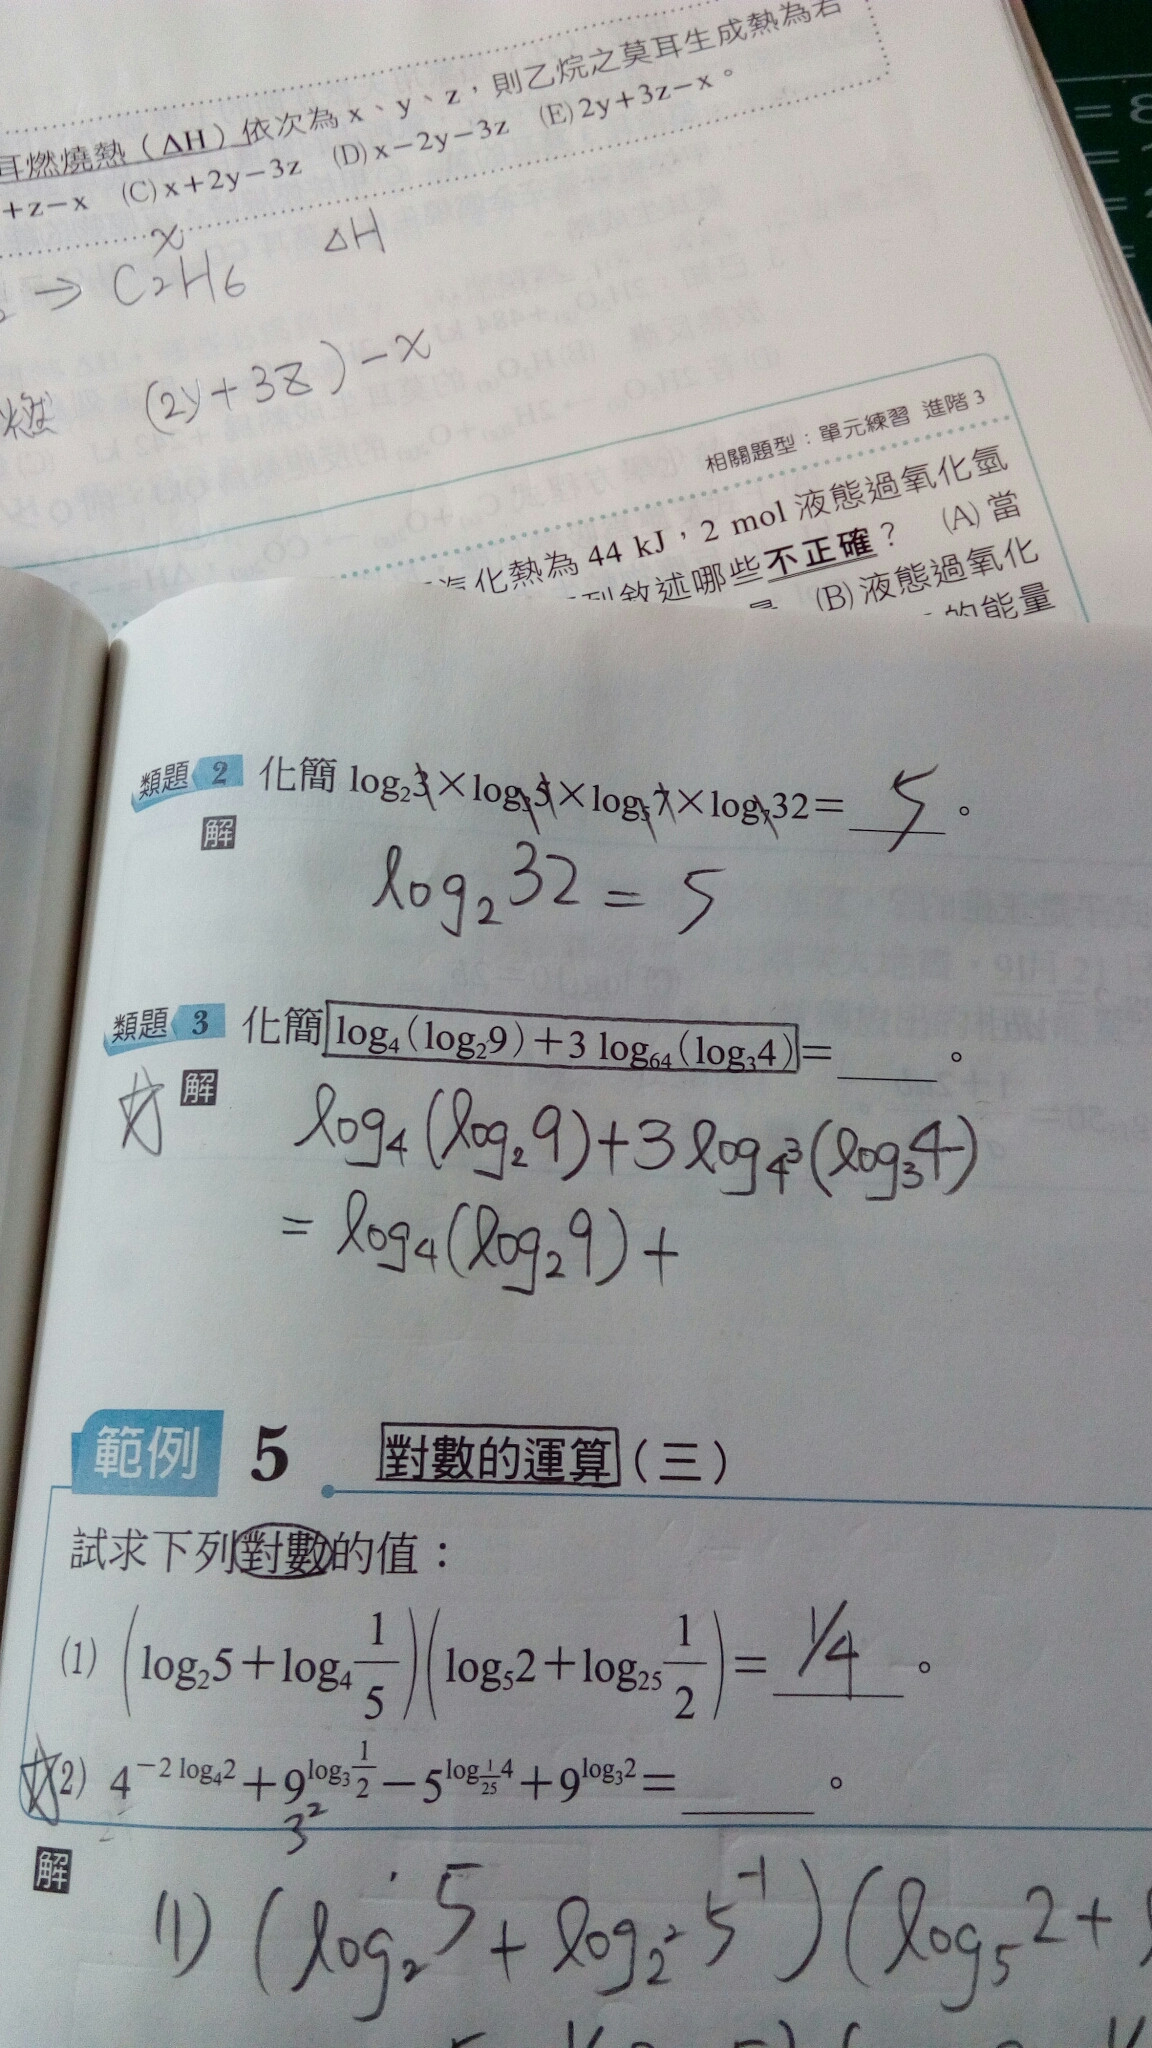 耳燃燒熱（ΔH）依次為 x、y、z，則乙烷之莫耳生成熱為若
+z−x (C)x+2y−3z (D)x−2y−3z (E)2y+3z−x。
x ΔH
→ C2H6
燃 (2y+3z)−x
相關題型：單元練習 進階3
汽化熱為 44 kJ，2 mol 液態過氧化氫
列敘述哪些不正確？ (A)當
(B)液態過氧化
的能量
類題 2 化簡 log₂3×log₃5×log₅7×log₇32= 5 。
解
log₂32 = 5
類題 3 化簡 log₄(log₂9)+3 log₆₄(log₃4)=____。
解
log₄(log₂9)+3log₄³(log₃4)
= log₄(log₂9)+
範例 5 對數的運算（三）
試求下列對數的值：
(1) (log₂5+log₄ 1/5)(log₅2+log₂₅ 1/2)= 1/4 。
(2) 4^(−2 log₄2)+9^(log₃ 1/2)−5^(log_(1/25) 4)+9^(log₃2)=____。
3²
解
(1) (log₂5+log₂²5⁻¹)(log₅2+